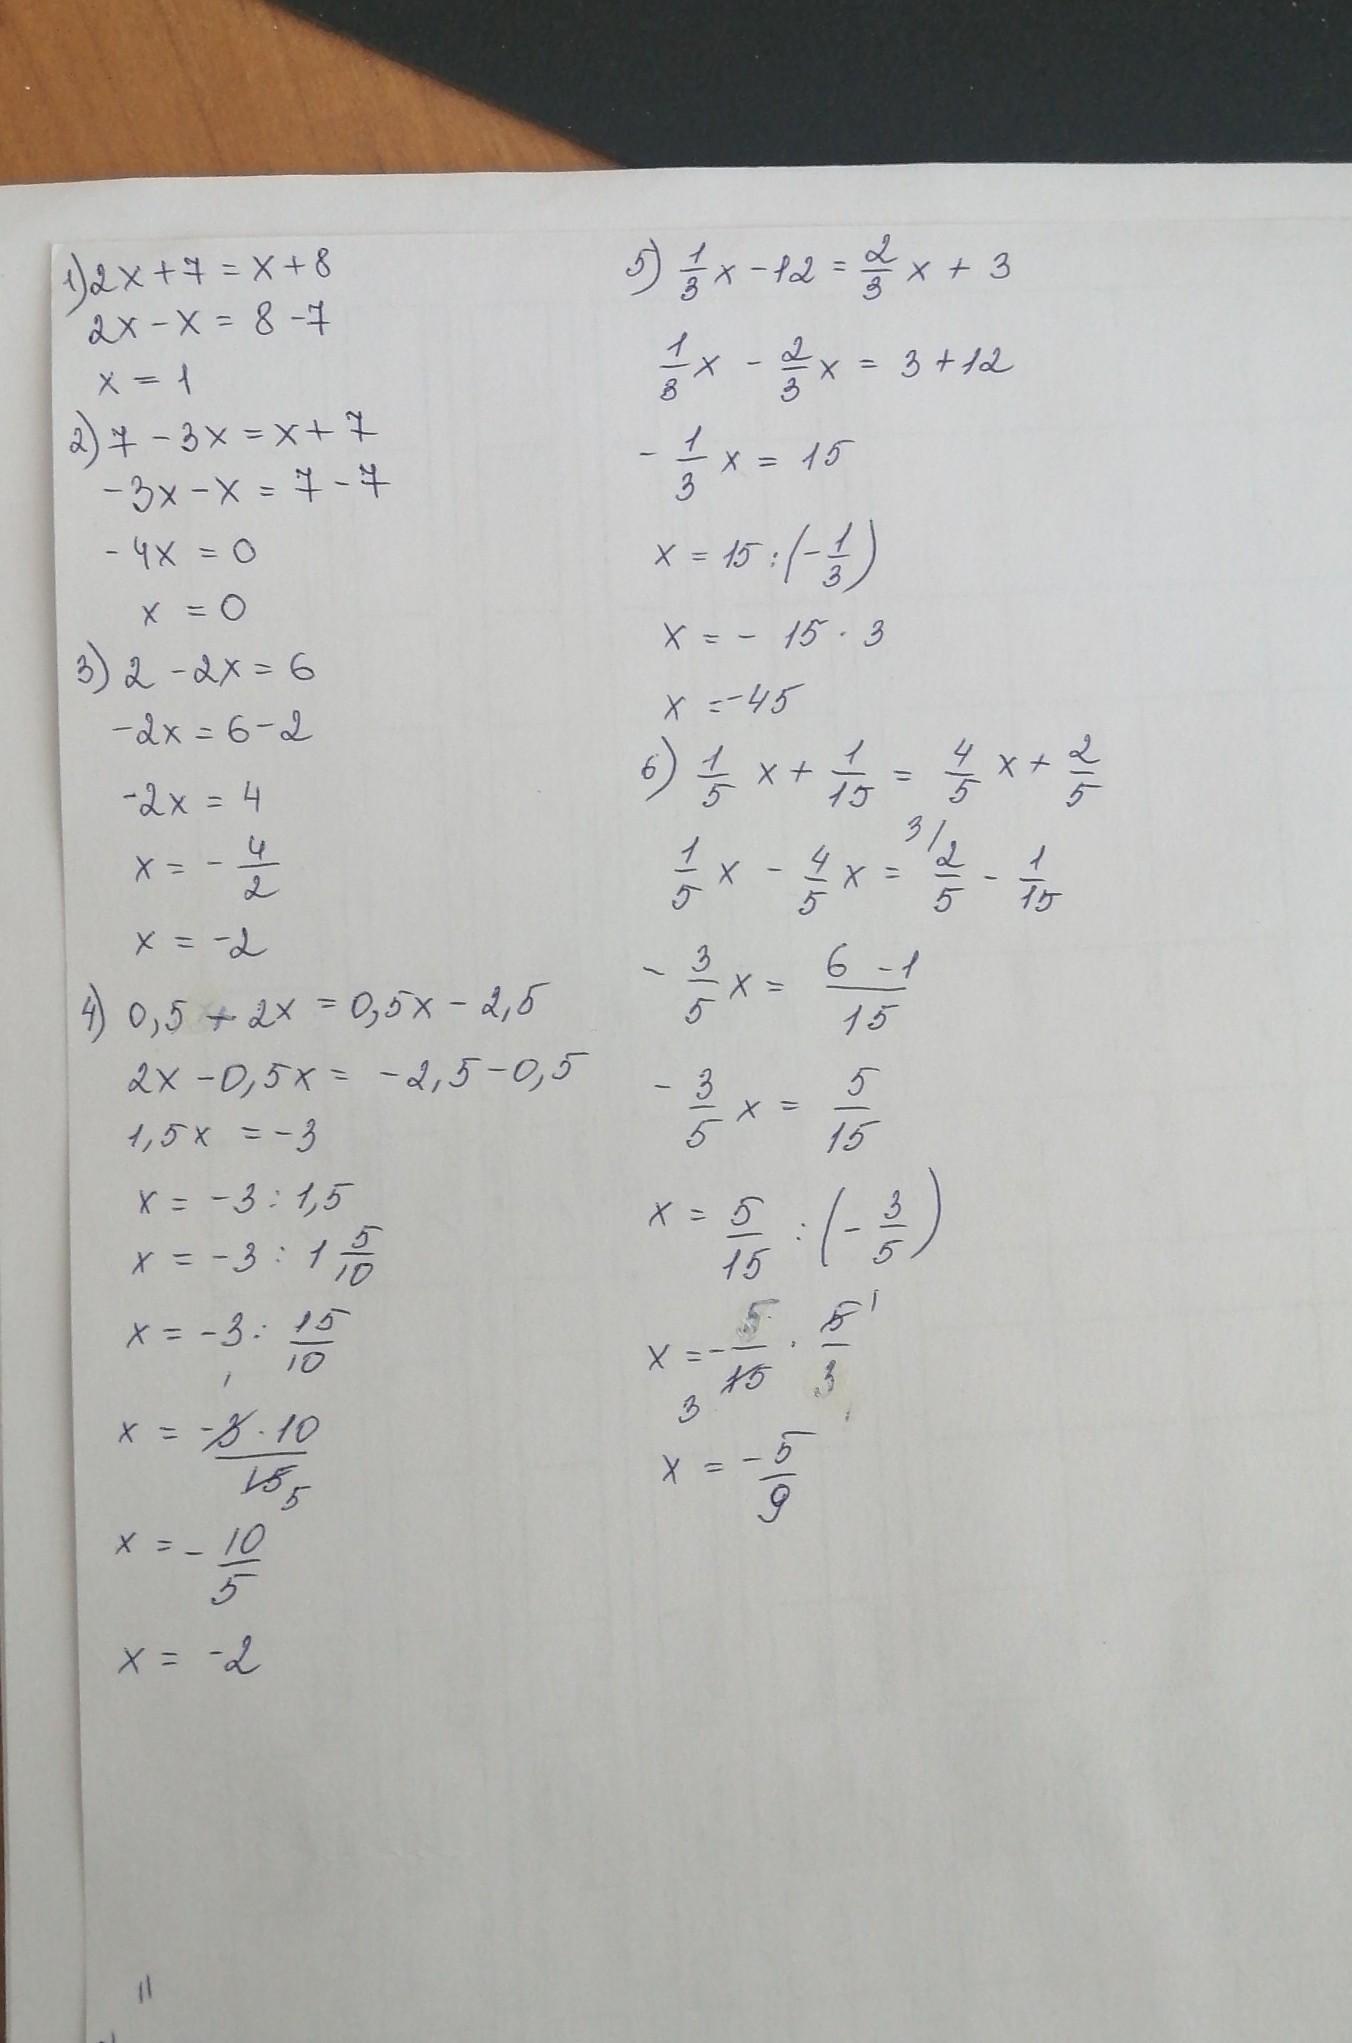 1) 2x + 7 = x + 8
2x - x = 8 - 7
x = 1
2) 7 - 3x = x + 7
-3x - x = 7 - 7
-4x = 0
x = 0
3) 2 - 2x = 6
-2x = 6 - 2
-2x = 4
x = -4/2
x = -2
4) 0,5 + 2x = 0,5x - 2,5
2x - 0,5x = -2,5 - 0,5
1,5x = -3
x = -3 : 1,5
x = -3 : 1 5/10
x = -3 : 15/10
x = -3 · 10 / 15 5
x = -10/5
x = -2
5) 1/3 x - 12 = 2/3 x + 3
1/3 x - 2/3 x = 3 + 12
-1/3 x = 15
x = 15 : (-1/3)
x = -15 · 3
x = -45
6) 1/5 x + 1/15 = 4/5 x + 2/5
1/5 x - 4/5 x = 3/ 2/5 - 1/15
-3/5 x = 6 - 1 / 15
-3/5 x = 5/15
x = 5/15 : (-3/5)
x = -5/15 3 · 5/3 1
x = -5/9